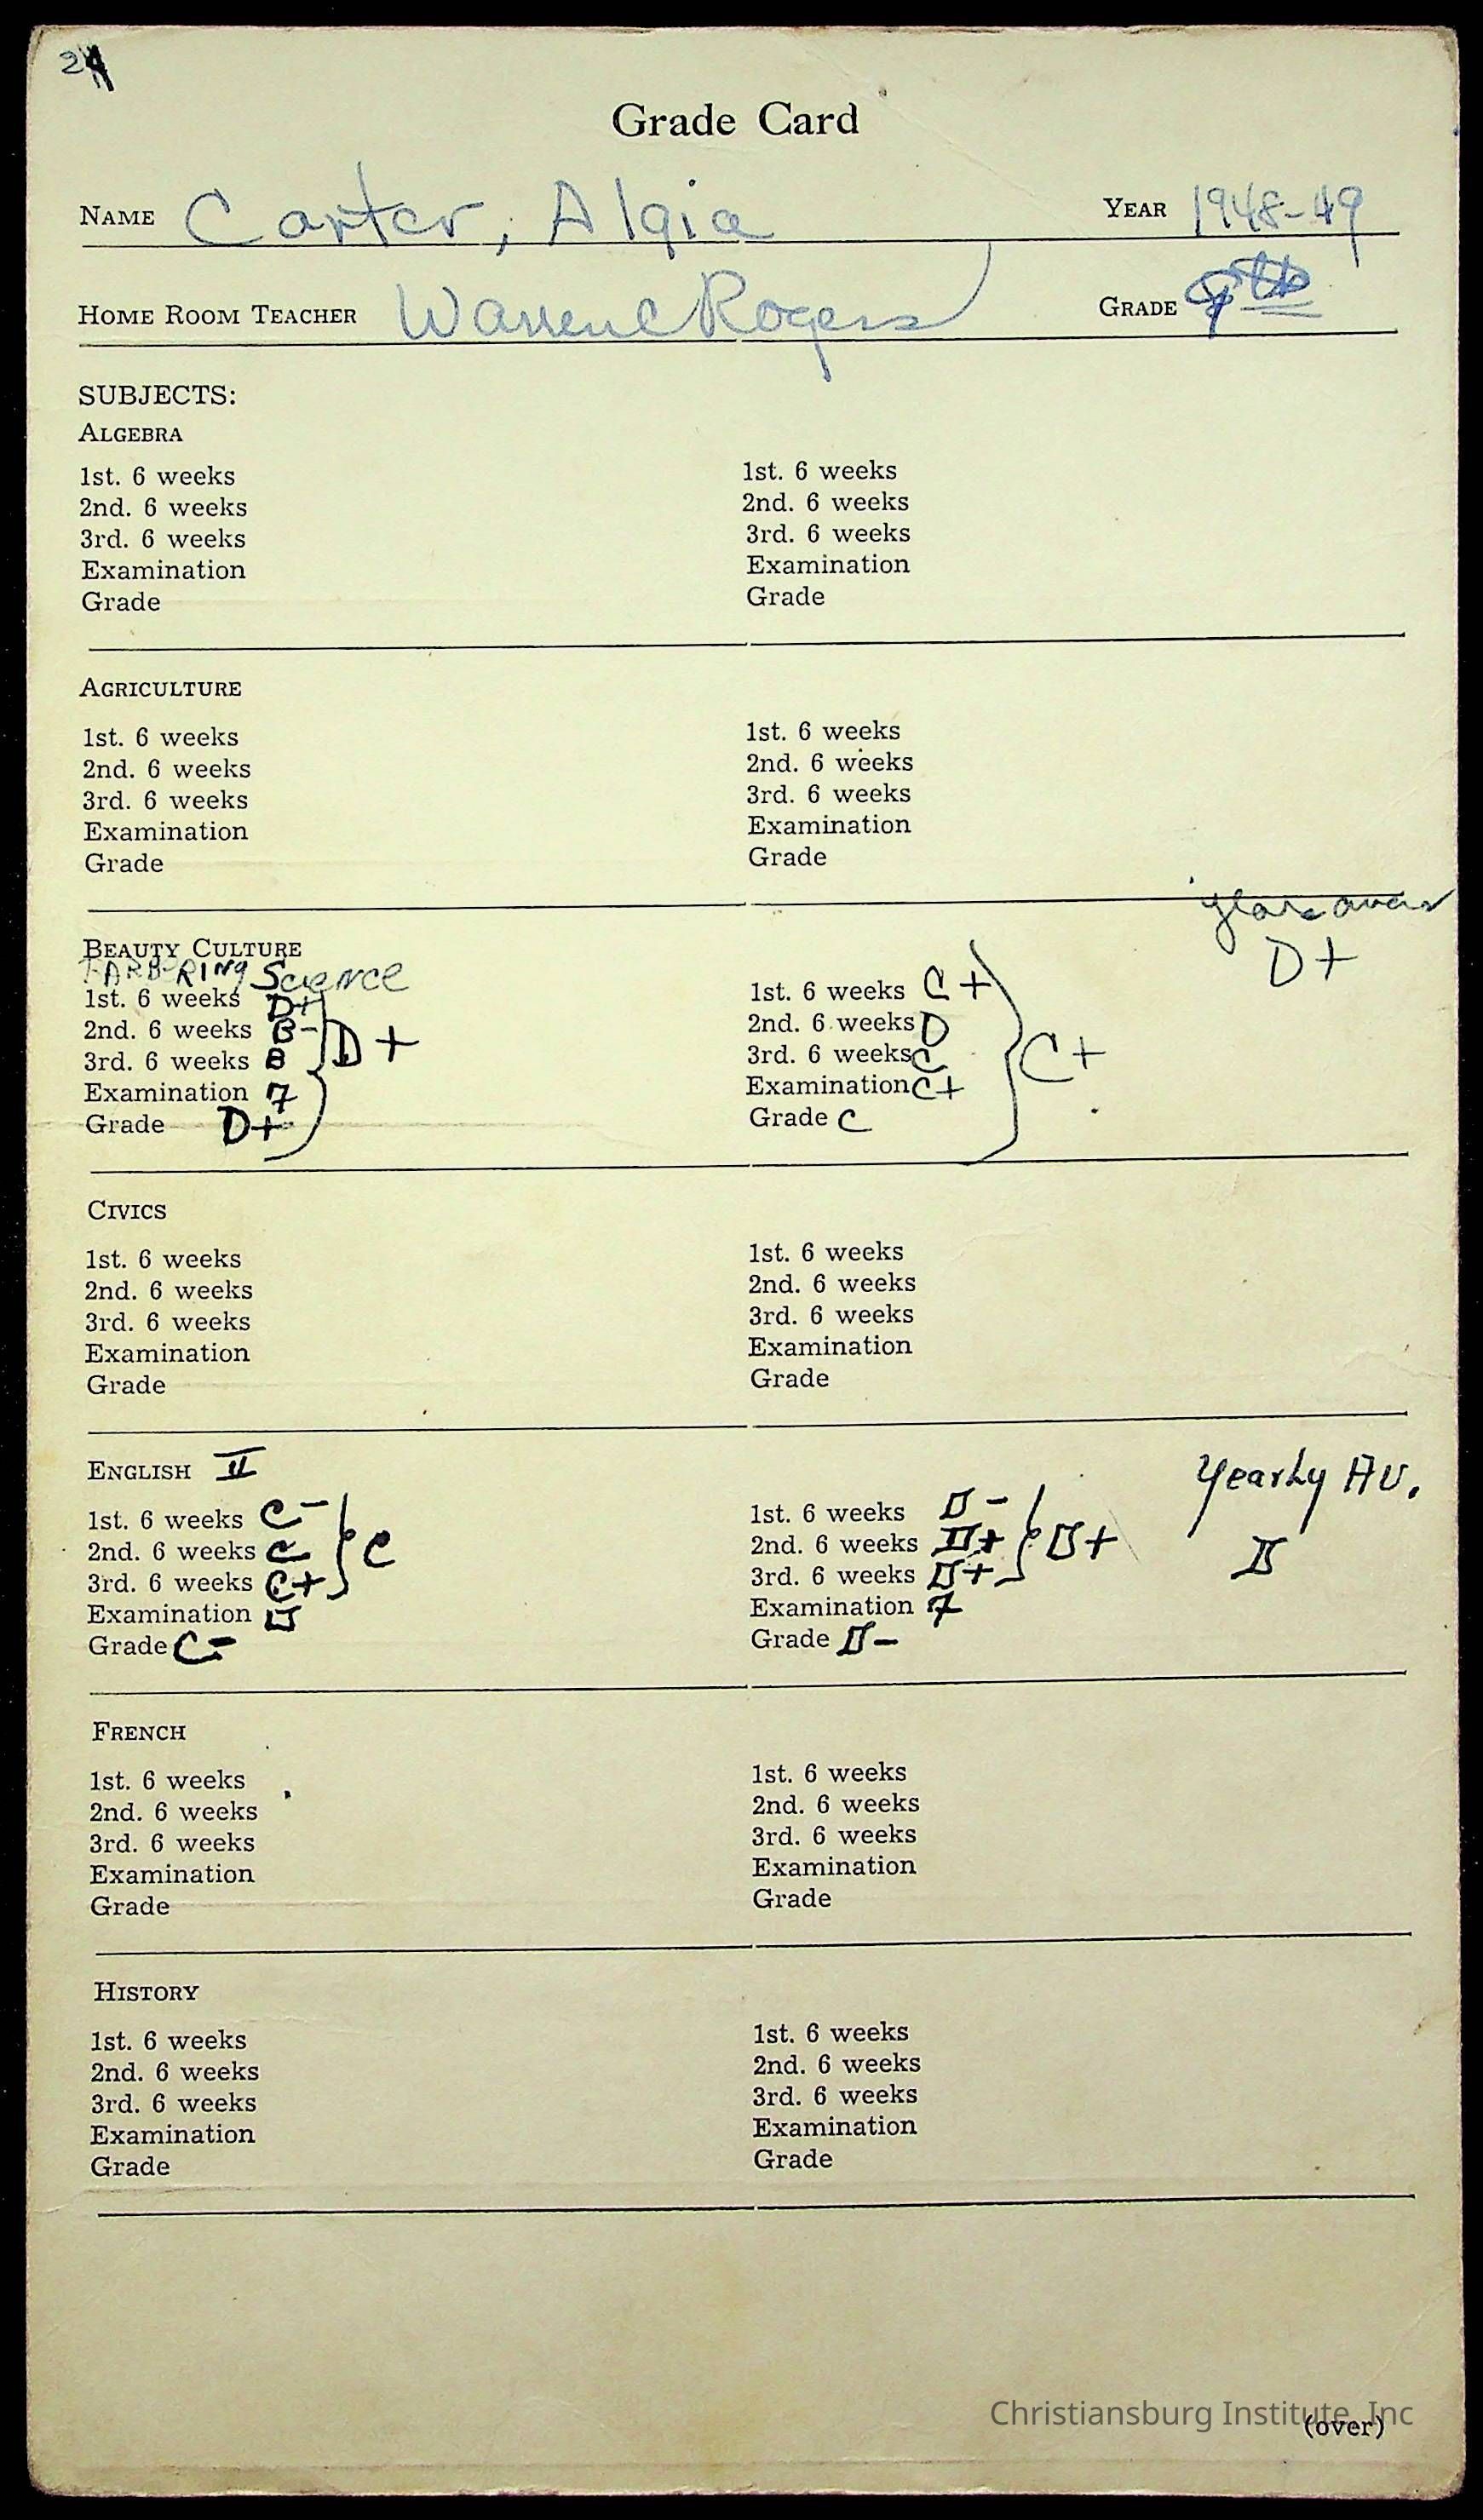 24
Grade Card
NAME Carter, Algia YEAR 1948-49
HOME ROOM TEACHER Warren C Rogers GRADE
SUBJECTS:
ALGEBRA
1st. 6 weeks 1st. 6 weeks
2nd. 6 weeks 2nd. 6 weeks
3rd. 6 weeks 3rd. 6 weeks
Examination Examination
Grade Grade
AGRICULTURE
1st. 6 weeks 1st. 6 weeks
2nd. 6 weeks 2nd. 6 weeks
3rd. 6 weeks 3rd. 6 weeks
Examination Examination
Grade Grade
D+
BEAUTY CULTURE
Science
1st. 6 weeks D+ 1st. 6 weeks C+
2nd. 6 weeks B- D+ 2nd. 6 weeks D
3rd. 6 weeks B 3rd. 6 weeks C C+
Examination 7 Examination C+
Grade D+ Grade C
CIVICS
1st. 6 weeks 1st. 6 weeks
2nd. 6 weeks 2nd. 6 weeks
3rd. 6 weeks 3rd. 6 weeks
Examination Examination
Grade Grade
ENGLISH II Yearly Av.
1st. 6 weeks C- 1st. 6 weeks D-
2nd. 6 weeks C C 2nd. 6 weeks D+ D+ D
3rd. 6 weeks C+ 3rd. 6 weeks D+
Examination D Examination 7
Grade C- Grade D-
FRENCH
1st. 6 weeks 1st. 6 weeks
2nd. 6 weeks 2nd. 6 weeks
3rd. 6 weeks 3rd. 6 weeks
Examination Examination
Grade Grade
HISTORY
1st. 6 weeks 1st. 6 weeks
2nd. 6 weeks 2nd. 6 weeks
3rd. 6 weeks 3rd. 6 weeks
Examination Examination
Grade Grade
Christiansburg Institute, Inc
(over)